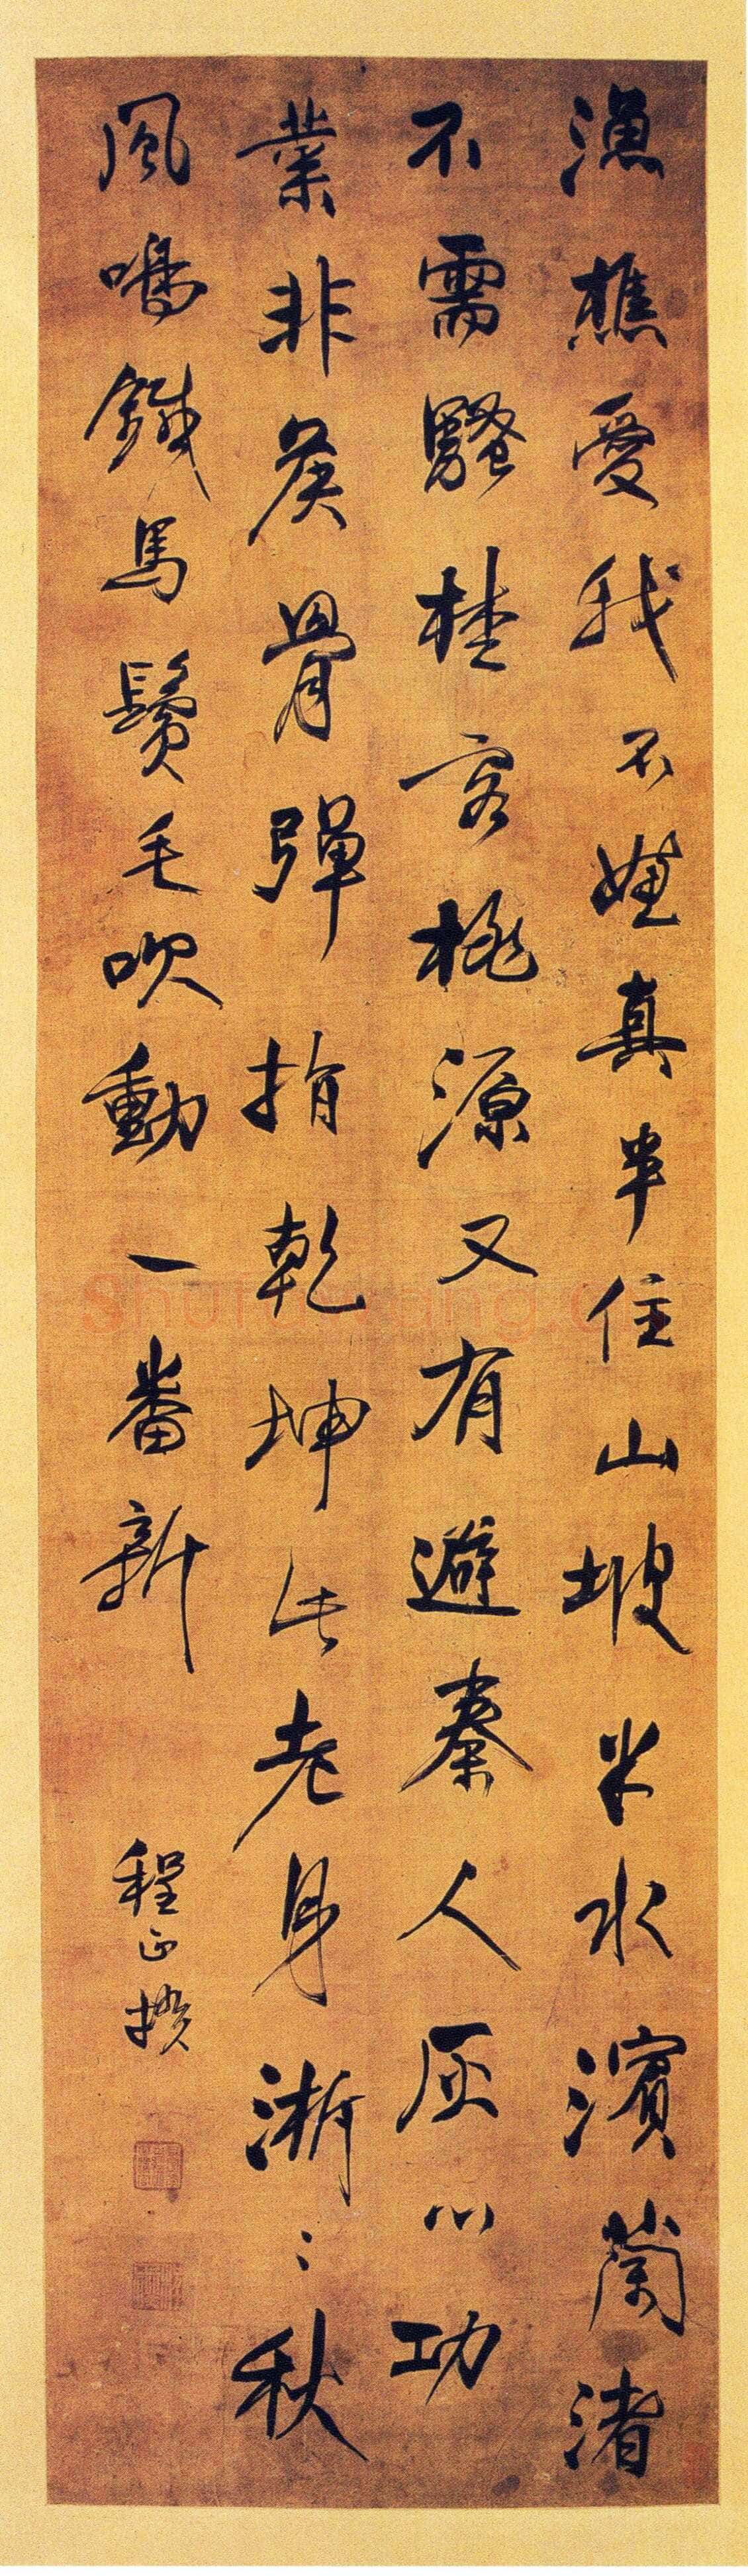 漁樵愛我不嫌真半住山坡半水濱蘭渚
不需騷楚客桃源又有避秦人灰心功
業非矦骨彈指乾坤此老身淅:秋
風鳴鐵馬鬢毛吹動一番新
程正揆